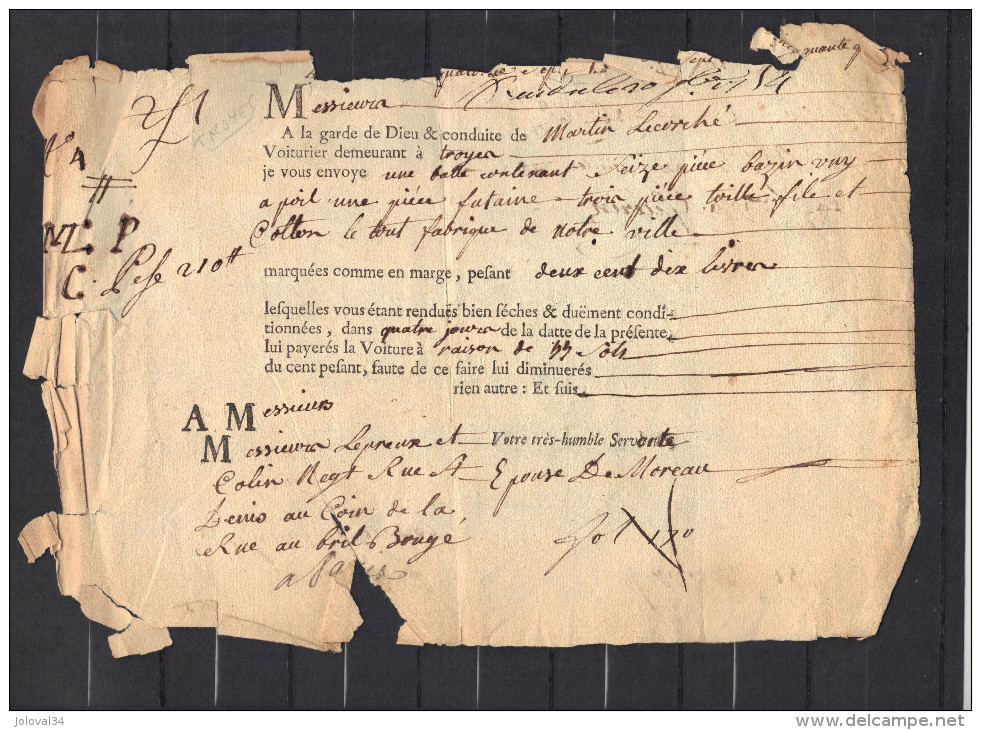 quante
Messieurs
TROYES
A la garde de Dieu & conduite de Martin Lecorché
Voiturier demeurant à troyes
je vous envoye une balle contenant Seize piéce bazin uny
a poil une piéce futaine trois piéce toille file et
Cotton le tout fabrique de notre ville
N° A
M L P
C. Pese 210tt
marquées comme en marge, pesant deux cent dix livres
lesquelles vous étant renduës bien séches & duëment condi-
tionnées, dans quatre jours de la datte de la présente,
lui payerés la Voiture à raison de 55 Sols
du cent pesant, faute de ce faire lui diminuerés
rien autre : Et suis
A Messieurs
Messieurs Lepreux et Votre très-humble Servante
Colin Negt Rue St Epouse De Moreau
Denis au Coin de la
Rue au
a Paris
joloval34
www.delcampe.net